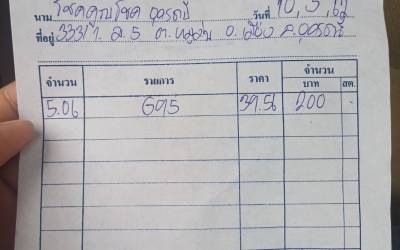 นาม โชคคูณโชค อุดรธานี วันที่ 10, 5
ที่อยู่ 333/1 ม.5 ต.หมูม่น อ.เมือง จ.อุดรธานี
จำนวน รายการ ราคา จำนวน
บาท สต.
5.06 G95 39.56 200